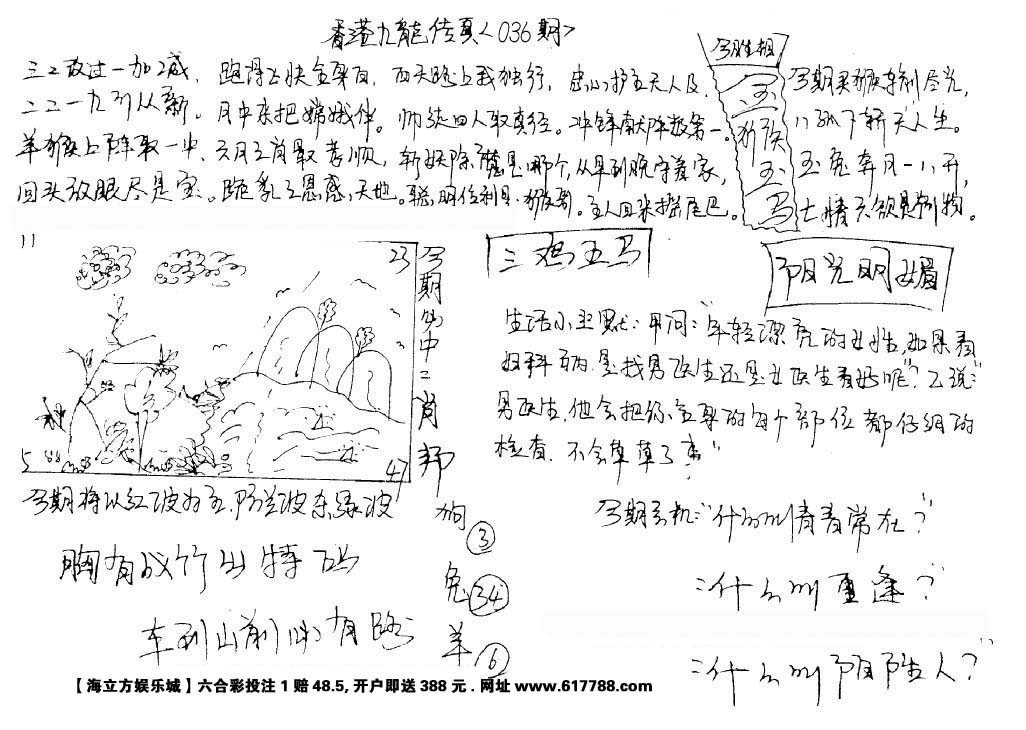 香港九龍传真<036期>
今期生肖
三二改过一加减，跑得上快金累自，西天路上我独行，忠心护主天人及，
二二一九引从新。月中来把嫦娥伴。师徒四人取真经。冲锋献阵数第一。
羊猴上阵取一中，六月之肖最苦顺，斩妖除魔是哪个，从早到晚守着家，
回头放眼尽是宝。跪乳之恩感天地。聪明伶利是猴哥。主人回来摇尾巴。
今期买猴特别尽光，
玉兔奔月一八开，
七情六欲是别物。
11
23
5
47
今期必中二肖
三鸡五马
阳光明媚
生活小幽默：甲问："年轻漂亮的女性，如果看
妇科病，是找男医生还是女医生看好呢？"乙说：
男医生，他会把你全身的每个部位都仔细的
检查，不会草草了事"
今期将以红波为主，防兰波杀绿波
胸有成竹出特码
车到山前必有路
狗③
兔㉞
羊⑥
今期玄机："什么叫青春常在？"
："什么叫重逢？"
："什么叫阴阳生人？"
【海立方娱乐城】六合彩投注1赔48.5,开户即送388元.网址www.617788.com